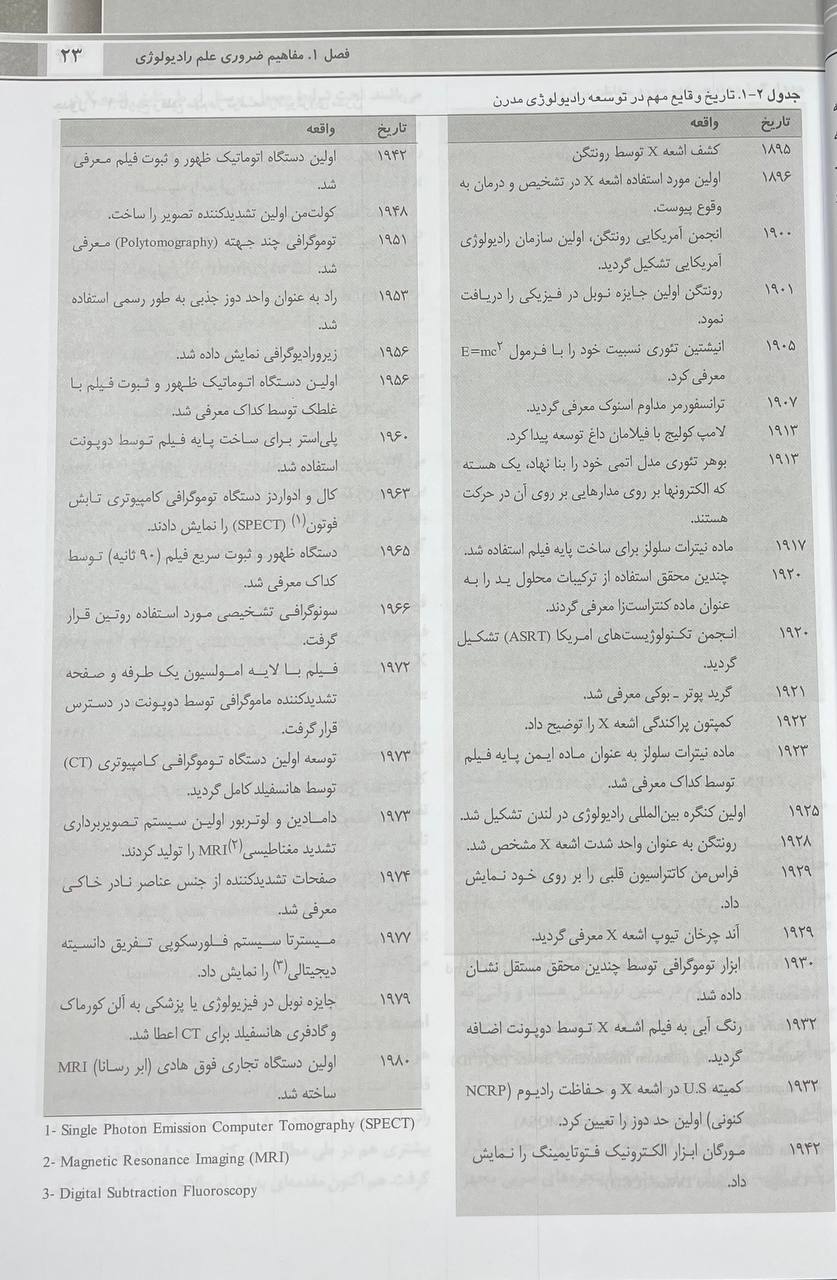 فصل ۱. مفاهیم ضروری علم رادیولوژی ۲۳
جدول ۲-۱. تاریخ وقایع مهم در توسعه رادیولوژی مدرن
تاریخ واقعه
۱۸۹۵ کشف اشعه X توسط رونتگن
۱۸۹۶ اولین مورد استفاده اشعه X در تشخیص و درمان به
وقوع پیوست.
۱۹۰۰ انجمن آمریکایی رونتگن، اولین سازمان رادیولوژی
آمریکایی تشکیل گردید.
۱۹۰۱ رونتگن اولین جایزه نوبل در فیزیکی را دریافت
نمود.
۱۹۰۵ انیشتین تئوری نسبیت خود را با فرمول E=mc۲
معرفی کرد.
۱۹۰۷ ترانسفورمر مداوم اسنوک معرفی گردید.
۱۹۱۳ لامپ کولیج با فیلامان داغ توسعه پیدا کرد.
۱۹۱۳ بوهر تئوری مدل اتمی خود را بنا نهاد، یک هسته
که الکترونها بر روی مدارهایی بر روی آن در حرکت
هستند.
۱۹۱۷ ماده نیترات سلولز برای ساخت پایه فیلم استفاده شد.
۱۹۲۰ چندین محقق استفاده از ترکیبات محلول ید را به
عنوان ماده کنتراست‌زا معرفی گردند.
۱۹۲۰ انجمن تکنولوژیست‌های امریکا (ASRT) تشکیل
گردید.
۱۹۲۱ گرید پوتر ـ بوکی معرفی شد.
۱۹۲۲ کمپتون پراکندگی اشعه X را توضیح داد.
۱۹۲۳ ماده نیترات سلولز به عنوان ماده ایمن پایه فیلم
توسط کداک معرفی شد.
۱۹۲۵ اولین کنگره بین‌المللی رادیولوژی در لندن تشکیل شد.
۱۹۲۸ رونتگن به عنوان واحد شدت اشعه X مشخص شد.
۱۹۲۹ فراس‌من کاتتراسیون قلبی را بر روی خود نمایش
داد.
۱۹۲۹ آند چرخان تیوپ اشعه X معرفی گردید.
۱۹۳۰ ابزار توموگرافی توسط چندین محقق مستقل نشان
داده شد.
۱۹۳۲ رنگ آبی به فیلم اشعه X توسط دوپونت اضافه
گردید.
۱۹۳۲ کمیته U.S در اشعه X و حفاظت رادیوم (NCRP
کنونی) اولین حد دوز را تعیین کرد.
۱۹۴۲ مورگان ابزار الکترونیک فتوتایمینگ را نمایش
داد.
تاریخ واقعه
۱۹۴۲ اولین دستگاه اتوماتیک ظهور و ثبوت فیلم معرفی
شد.
۱۹۴۸ کولت‌من اولین تشدیدکننده تصویر را ساخت.
۱۹۵۱ توموگرافی چند جهته (Polytomography) معرفی
شد.
۱۹۵۳ راد به عنوان واحد دوز جذبی به طور رسمی استفاده
شد.
۱۹۵۶ زیرورادیوگرافی نمایش داده شد.
۱۹۵۶ اولین دستگاه اتوماتیک ظهور و ثبوت فیلم با
غلطک توسط کداک معرفی شد.
۱۹۶۰ پلی‌استر برای ساخت پایه فیلم توسط دوپونت
استفاده شد.
۱۹۶۳ کال و ادواردز دستگاه توموگرافی کامپیوتری تابش
فوتون(۱) (SPECT) را نمایش دادند.
۱۹۶۵ دستگاه ظهور و ثبوت سریع فیلم (۹۰ ثانیه) توسط
کداک معرفی شد.
۱۹۶۶ سونوگرافی تشخیصی مورد استفاده روتین قرار
گرفت.
۱۹۷۲ فیلم با لایه امولسیون یک طرفه و صفحه
تشدیدکننده ماموگرافی توسط دوپونت در دسترس
قرار گرفت.
۱۹۷۳ توسعه اولین دستگاه توموگرافی کامپیوتری (CT)
توسط هانسفیلد کامل گردید.
۱۹۷۳ دامادین و لوتربور اولین سیستم تصویربرداری
تشدید مغناطیسی(۲)MRI را تولید کردند.
۱۹۷۴ صفحات تشدیدکننده از جنس عناصر نادر خاکی
معرفی شد.
۱۹۷۷ میسترتا سیستم فلورسکوپی تفریق دانسیته
دیجیتالی(۳) را نمایش داد.
۱۹۷۹ جایزه نوبل در فیزیولوژی یا پزشکی به آلن کورماک
و گادفری هانسفیلد برای CT اعطا شد.
۱۹۸۰ اولین دستگاه تجاری فوق هادی (ابر رسانا) MRI
ساخته شد.
1- Single Photon Emission Computer Tomography (SPECT)
2- Magnetic Resonance Imaging (MRI)
3- Digital Subtraction Fluoroscopy